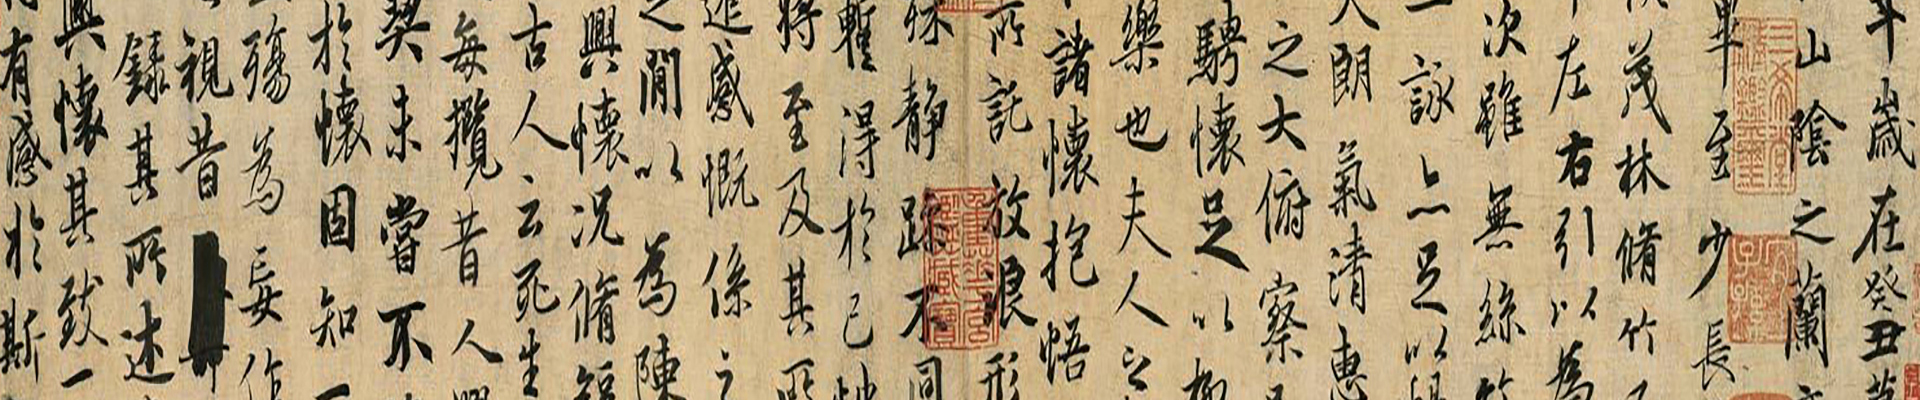 年歲在癸丑
山陰之蘭
畢至少長
茂林脩竹
左右引以為
次雖無絲竹
一詠亦足以暢
朗氣清惠
之大俯察
騁懷足以極
樂也夫人之
諸懷抱悟
所託放浪形
殊静躁不同
暫得於己
將至及其所
感慨係之
之閒以為陳
興懷況脩短
古人云死生
每攬昔人興
契未嘗不
於懷固知一
殤為妄作
視昔
錄其所述
興懷其致一
有感於斯